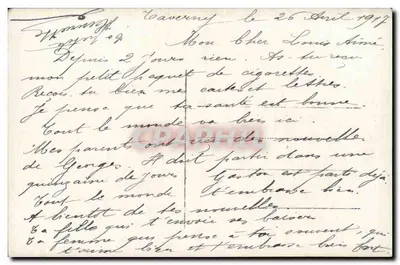 Taverny le 26 Avril 1917
Mon Cher Louis Aimé,
Depuis 2 jours rien. As-tu reçu
mon petit paquet de cigarettes.
Reçois-tu bien mes cartes et lettres.
Je pense que ta santé est bonne.
Tout le monde va bien ici.
Mes parents ont des nouvelles
de Georges. Il doit partir dans une
quinzaine de jours. Gaston est parti déjà
Tout le monde t'embrasse bien.
A bientôt de tes nouvelles
Ta fille qui t'envoie ses baisers
Ta femme qui pense à toi souvent, qui
t'aime bien et t'embrasse bien fort